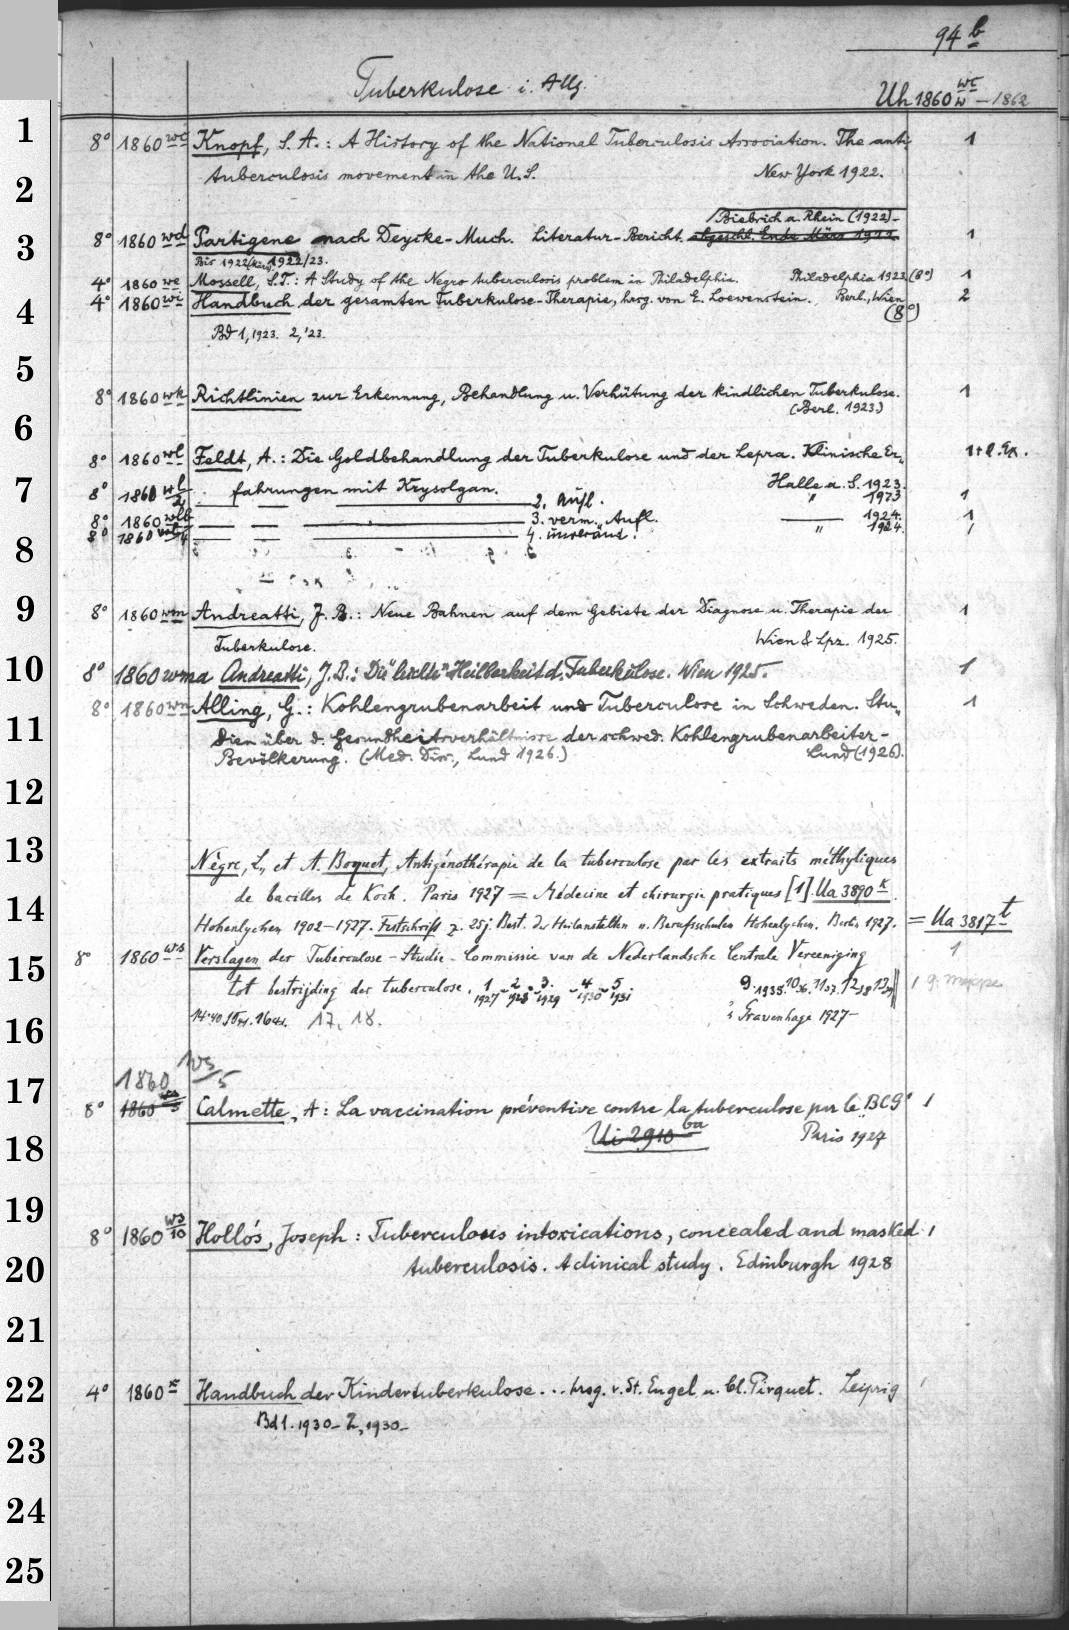 94 b
Tuberkulose i. Allg.
Uh 1860 wc/w – 1862
1
8° 1860 wc Knopf, S. A.: A History of the National Tuberculosis Association. The anti- 1
2
tuberculosis movement in the U.S. New York 1922.
Biebrich a. Rhein (1922)–
3
8° 1860 wd Partigene nach Deycke-Much. Literatur-Bericht abgeschl. Ende März 1922. 1
Bis 1922/23.
4° 1860 we Mossell, S.T.: A Study of the Negro tuberculosis problem in Philadelphia. Philadelphia 1923 (8°) 1
4
4° 1860 wi Handbuch der gesamten Tuberkulose-Therapie, hrsg. von E. Loewenstein. Berl., Wien 2
(8°)
Bd 1, 1923. 2, '23.
5
8° 1860 wk Richtlinien zur Erkennung, Behandlung u. Verhütung der kindlichen Tuberkulose. 1
(Berl. 1923.)
6
8° 1860 wl Feldt, A.: Die Goldbehandlung der Tuberkulose und der Lepra. Klinische Er- 1 + 2. Ex.
7
fahrungen mit Krysolgan. Halle a. S. 1923.
8° 1860 wl/2 — — — 2. Aufl. " 1923 1
8° 1860 wlb — — — 3. verm. Aufl. — 1924. 1
8° 1860 wl/4 — — — 4. unveränd. " 1924. 1
8
9
8° 1860 wm Andreatti, J. B.: Neue Bahnen auf dem Gebiete der Diagnose u. Therapie der 1
Tuberkulose. Wien & Lpz. 1925.
10
8° 1860 wma Andreatti, J. B.: Die "leichte" Heilbarkeit d. Tuberkulose. Wien 1925. 1
8° 1860 wn Alling, G.: Kohlengrubenarbeit und Tuberculose in Schweden. Stu- 1
11
dien über d. Gesundheitsverhältnisse der schwed. Kohlengrubenarbeiter-
Bevölkerung. (Med. Diss., Lund 1926.) Lund (1926).
12
13
Nègre, L., et A. Boquet, Antigénothérapie de la tuberculose par les extraits méthyliques
de bacilles de Koch. Paris 1927 = Médecine et chirurgie pratiques [1]. Ua 3890 k
14
Hohenlychen 1902–1927. Festschrift z. 25j. Best. der Heilanstalten u. Berufsschulen Hohenlychen. Berlin 1927. = Ua 3817 t
8° 1860 ws Verslagen der Tuberculose-Studie-Commissie van de Nederlandsche Centrale Vereeniging 1
15
tot bestrijding der tuberculose. 1 1927 - 2 1928 - 3 1929 - 4 1930 - 5 1931 9. 1935. 10 36. 11 37. 12 38 13 39 1 g. mappe
14 40 15 41. 16 42. 17, 18. 's Gravenhage 1927–
16
1860 ws/5
17
8° 1860 ws/5 Calmette, A: La vaccination préventive contre la tuberculose par le "BCG" 1
Ui 2910 ba Paris 1927
18
19
8° 1860 ws/10 Hollós, Joseph: Tuberculous intoxications, concealed and masked 1
20
tuberculosis. A clinical study. Edinburgh 1928
21
22
4° 1860 x Handbuch der Kindertuberkulose... hrsg. v. St. Engel u. Cl. Pirquet. Leipzig 1
Bd 1. 1930– 2, 1930–
23
24
25